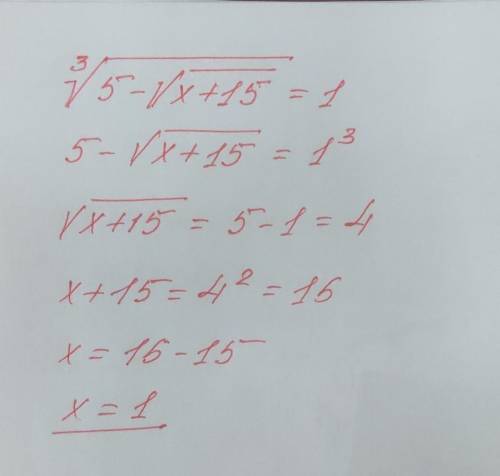 ∛(5-√(x+15)) = 1
5-√(x+15) = 1³
√(x+15) = 5-1=4
x+15=4²=16
x=16-15
x=1